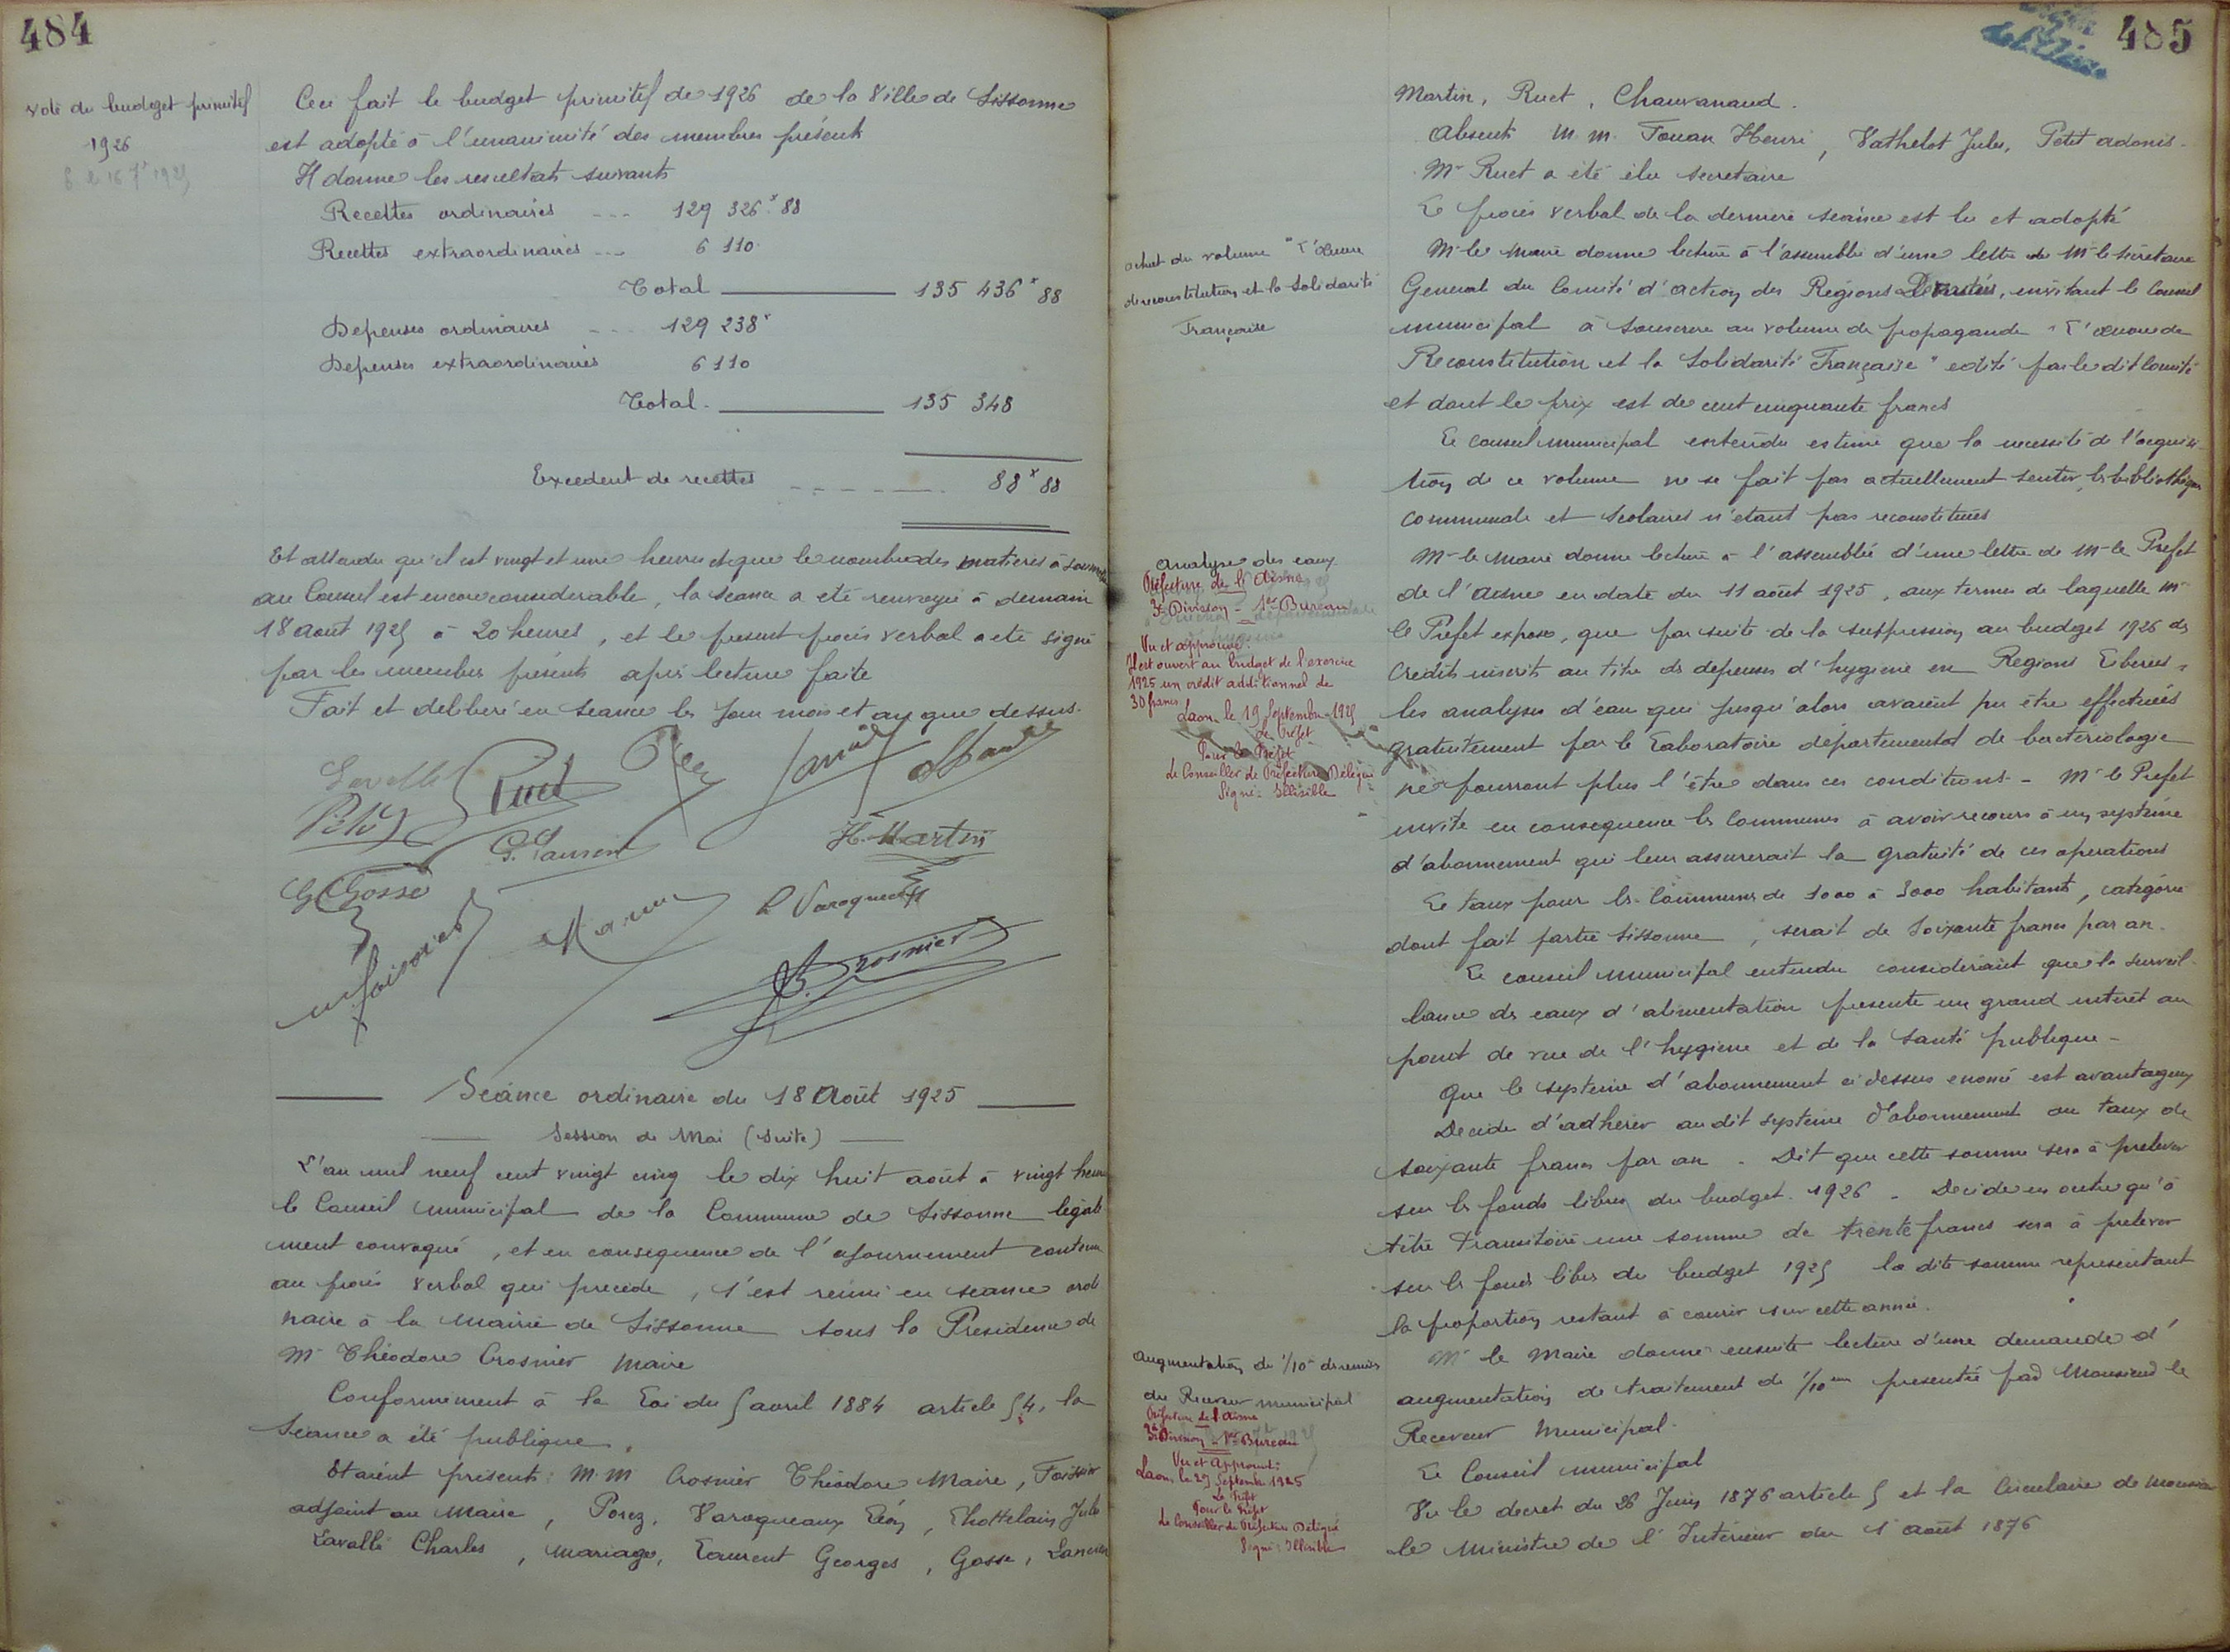 484
vote du budget primitif
1926
Ceci fait le budget primitif de 1926 de la Ville de Sissonne
est adopté à l'unanimité des membres présents
Il donne les resultats suivants
Recettes ordinaires --- 129 326 x 88
Recettes extraordinaires --- 6 110.
Total 135 436 x 88
Depenses ordinaires --- 129 238 x
Depenses extraordinaires 6 110
Total. 135 348
Excedent de recettes 88 x 88
Et attendu qu'il est vingt et une heures et que le nombre des matières à soumettre
au Conseil est encore considerable, la séance a été renvoyée à demain
18 août 1925 à 20 heures, et le present procès verbal a été signé
par les membres présents après lecture faite
Fait et deliberé en seance les jour mois et an que dessus.
Lavallé Ruet
G. Laurent H. Martin
G Gosse
L Varoqueaux
T. Crosnier
Séance ordinaire du 18 Août 1925
Session de Mai (Suite)
L'an mil neuf cent vingt cinq le dix huit août à vingt heures
le Conseil municipal de la Commune de Sissonne légale
ment convoqué, et en consequence de l'ajournement contenu
au procès verbal qui precede, s'est réuni en seance ordi
naire à la Mairie de Sissonne sous la Presidence de
Mr Théodore Crosnier Maire
Conformément à la Loi du 5 avril 1884 article 54, la
Séance a été publique.
Etaient présents: M.M Crosnier Théodore Maire, Foissier
adjoint au Maire, Porez, Varoqueaux Léon, Lhottelain Jules
Lavallé Charles, Mariage, Laurent Georges, Gosse, Lancien
485
Martin, Ruet, Chauvanaud.
Absents M.M. Touan Henri, Vathelot Jules, Petit adonis.
Mr Ruet a été élu secretaire
Le procès verbal de la derniere séance est lu et adopté
achat du volume "L'Oeuvre
de reconstitution et la Solidarité
Française
Mr le Maire donne lecture à l'assemblée d'une lettre de Mr le Secretaire
General du Comité d'action des Regions Devastées, invitant le Conseil
municipal à souscrire au volume de propagande "L'œuvre de
Reconstitution et la Solidarité Française" edité par le dit Comité
et dont le prix est de cent cinquante francs
Le conseil municipal entendu estime que la necessité de l'acquisi-
tion de ce volume ne se fait pas actuellement sentir, les bibliothèques
communale et scolaires n'etant pas reconstituées
Analyse des eaux
Préfecture de l'Aisne
3e Division - 1er Bureau
Vu et approuvé.
Il est ouvert au budget de l'exercice
1925 un crédit additionnel de
30 francs
Laon, le 19 Septembre 1925
Le Préfet
Pour le Préfet
Le Conseiller de Préfecture Délégué
Signé: Illisible
Mr le Maire donne lecture à l'assemblée d'une lettre de Mr le Prefet
de l'Aisne en date du 11 août 1925, aux termes de laquelle Mr
le Prefet expose, que par suite de la suppression au budget 1926 des
Credits inscrits au titre des depenses d'hygiene en Regions Liberées
les analyses d'eau qui jusqu'alors avaient pu être effectuées
gratuitement par le Laboratoire départemental de bacteriologie
ne pourront plus l'être dans ces conditions - Mr le Prefet
invite en consequence les Communes à avoir recours à un système
d'abonnement qui leur assurerait la gratuité de ces operations
Le taux pour les Communes de 1000 à 3000 habitants, catégorie
dont fait partie Sissonne, serait de soixante francs par an.
Le conseil municipal entendu considerant que la surveil-
lance des eaux d'alimentation presente un grand interêt au
point de vue de l'hygiene et de la santé publique -
Que le système d'abonnement ci dessus enoncé est avantageux
Decide d'adherer au dit système d'abonnement au taux de
soixante francs par an. Dit que cette somme sera à prelever
sur les fonds libres du budget 1926. Decide en outre qu'à
titre transitoire une somme de trente francs sera à prelever
sur les fonds libres du budget 1925 la dite somme representant
la proportion restant à courir sur cette année.
Augmentation de 1/10e de remises
du Receveur municipal
Préfecture de l'Aisne
3e Division - 1er Bureau
Vu et Approuvé:
Laon, le 29 Septembre 1925
Le Préfet
Pour le Préfet
Le Conseiller de Préfecture Délégué
Signé: Illisible
Mr le Maire donne ensuite lecture d'une demande d'
augmentation de traitement de 1/10eme presentée par Monsieur le
Receveur Municipal.
Le Conseil municipal
Vu le decret du 26 Juin 1876 article 5 et la Circulaire de Monsieur
le Ministre de l'Interieur du 1 août 1876